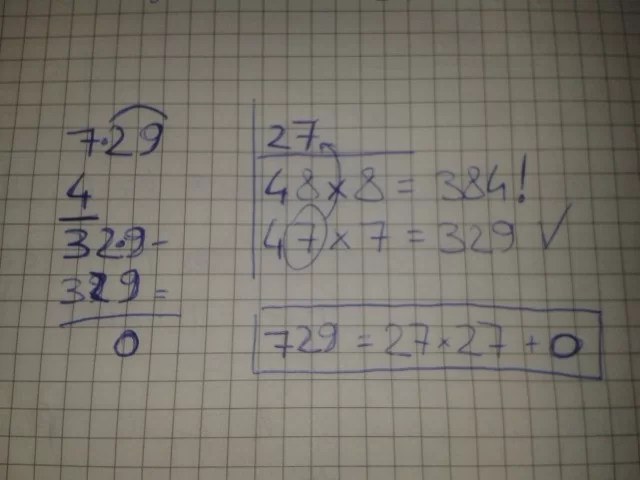 7·29
4
32·9-
329=
0
27
48×8=384!
47×7=329 ✓
729=27×27+0